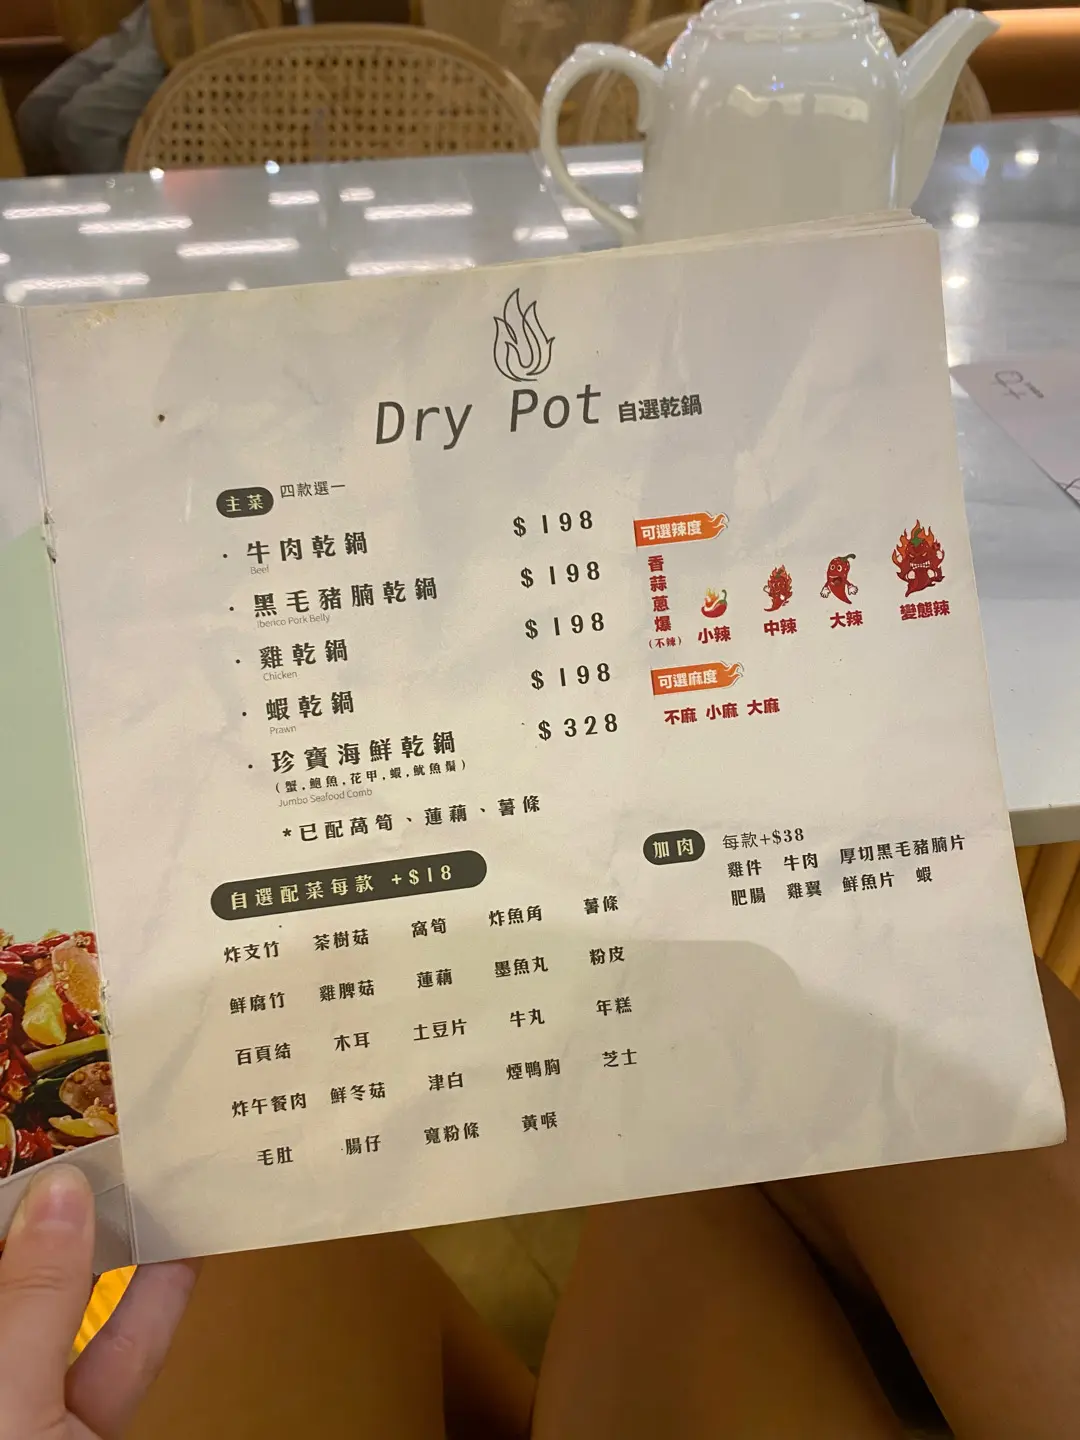 Dry Pot 自選乾鍋
主菜 四款選一
· 牛肉乾鍋 $198
Beef
· 黑毛豬腩乾鍋 $198
Iberico Pork Belly
· 雞乾鍋 $198
Chicken
· 蝦乾鍋 $198
Prawn
· 珍寶海鮮乾鍋 $328
(蟹,鮑魚,花甲,蝦,魷魚鬚)
Jumbo Seafood Comb
*已配萵筍、蓮藕、薯條
可選辣度
香蒜蔥爆
(不辣)
小辣 中辣 大辣 變態辣
可選麻度
不麻 小麻 大麻
自選配菜每款 +$18
炸支竹 茶樹菇 窩筍 炸魚角 薯條
鮮腐竹 雞脾菇 蓮藕 墨魚丸 粉皮
百頁結 木耳 土豆片 牛丸 年糕
炸午餐肉 鮮冬菇 津白 煙鴨胸 芝士
毛肚 腸仔 寬粉條 黃喉
加肉 每款+$38
雞件 牛肉 厚切黑毛豬腩片
肥腸 雞翼 鮮魚片 蝦